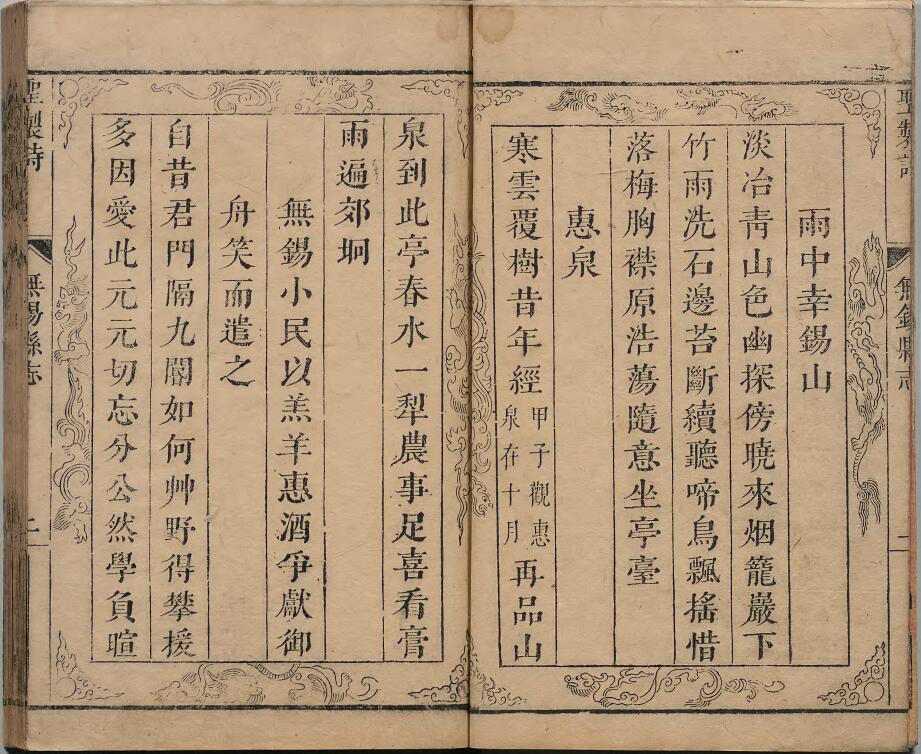 聖製詩
無錫縣志
雨中幸錫山
淡冶青山色幽探傍曉來烟籠巖下
竹雨洗石邊苔斷續聽啼鳥飄搖惜
落梅胸襟原浩蕩隨意坐亭臺
惠泉
寒雲覆樹昔年經甲子觀惠泉在十月再品山
泉到此亭春水一犁農事足喜看膏
雨遍郊坰
無錫小民以羔羊惠酒爭獻御
舟笑而遣之
自昔君門隔九閽如何艸野得攀援
多因愛此元元切忘分公然學負暄
聖製詩
無錫縣志
二